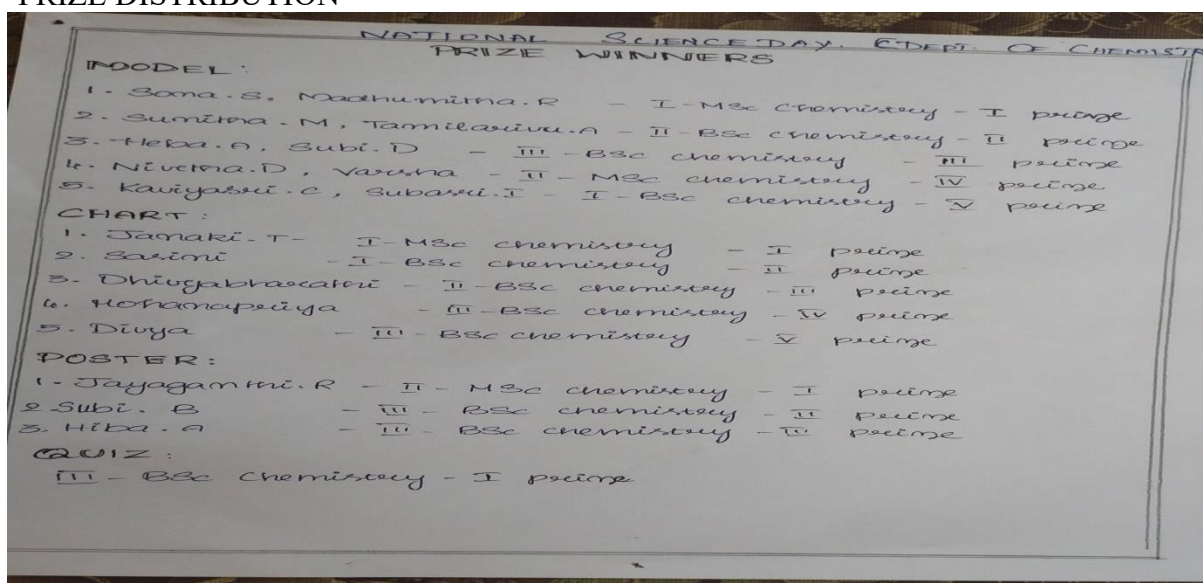 PRIZE DISTRIBUTION
NATIONAL SCIENCE DAY. DEPT. OF CHEMISTR
PRIZE WINNERS
MODEL:
1. Soma.S. Madhumitha.R - I-MSc Chemistry - I prize
2. Sumitha.M, Tamilarivu.A - II-BSc chemistry - II prize
3. Heba.A, Subi.D - III-BSc chemistry - III prize
4. Nivetha.D, Varsha - II-MSc chemistry - IV prize
5. Kaviyasri.C, Subasri.I - I-BSc chemistry - V prize
CHART:
1. Janaki.T- I-MSc chemistry - I prize
2. Sarimi - I-BSc chemistry - II prize
3. Dhivyabharathi - II-BSc chemistry - III prize
4. Mohanapriya - III-BSc chemistry - IV prize
5. Divya - III-BSc chemistry - V prize
POSTER:
1. Jayaganthi.R - II-MSc chemistry - I prize
2 Subi.B - III-BSc chemistry - II prize
3. Hiba.A - III-BSc chemistry - III prize
QUIZ:
III-BSc Chemistry - I prize